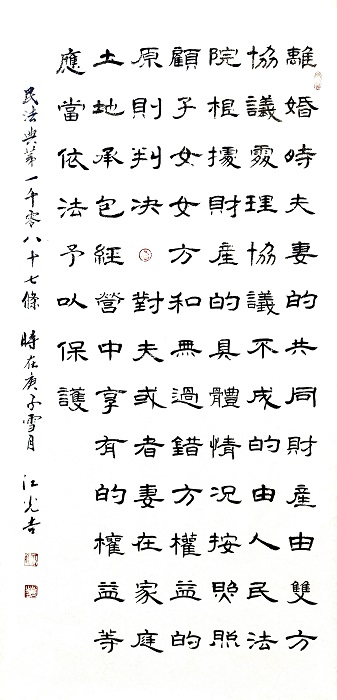 離婚時夫妻的共同財產由雙方
協議處理協議不成的由人民法
院根據財產的具體情況按照照
顧子女女方和無過錯方權益的
原則判決對夫或者妻在家庭
土地承包經營中享有的權益等
應當依法予以保護
民法典第一千零八十七條 時在庚子雪月 江光吉